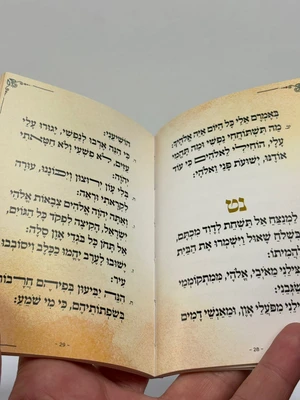 בְּאָמְרָם אֵלַי כָּל הַיּוֹם אַיֵּה אֱלֹהֶיךָ:
מַה תִּשְׁתּוֹחֲחִי נַפְשִׁי וּמַה תֶּהֱמִי
עָלָי, הוֹחִילִי לֵאלֹהִים כִּי עוֹד
אוֹדֶנּוּ, יְשׁוּעֹת פָּנַי וֵאלֹהָי:
נט
לַמְנַצֵּחַ אַל תַּשְׁחֵת לְדָוִד מִכְתָּם,
בִּשְׁלֹחַ שָׁאוּל וַיִּשְׁמְרוּ אֶת הַבַּיִת
לַהֲמִיתוֹ:
הַצִּילֵנִי מֵאֹיְבַי, אֱלֹהָי, מִמִּתְקוֹמְמַי
תְּשַׂגְּבֵנִי:
מִפֹּעֲלֵי אָוֶן, וּמֵאַנְשֵׁי דָמִים
- 28 -
הוֹשִׁיעֵנִי:
כִּי הִנֵּה אָרְבוּ לְנַפְשִׁי, יָגוּרוּ עָלַי
עַזִּים, לֹא פִשְׁעִי וְלֹא חַטָּאתִי
בְּלִי עָוֹן יְרוּצוּן וְיִכּוֹנָנוּ, עוּרָה
לִקְרָאתִי וּרְאֵה:
וְאַתָּה יְהוָה אֱלֹהִים צְבָאוֹת אֱלֹהֵי
יִשְׂרָאֵל, הָקִיצָה לִפְקֹד כָּל הַגּוֹיִם,
אַל תָּחֹן כָּל בֹּגְדֵי אָוֶן סֶלָה:
יָשׁוּבוּ לָעֶרֶב יֶהֱמוּ כַכָּלֶב וִיסוֹבְבוּ
עִיר:
הִנֵּה יַבִּיעוּן בְּפִיהֶם חֲרָבוֹת
בְּשִׂפְתוֹתֵיהֶם, כִּי מִי שֹׁמֵעַ:
- 29 -